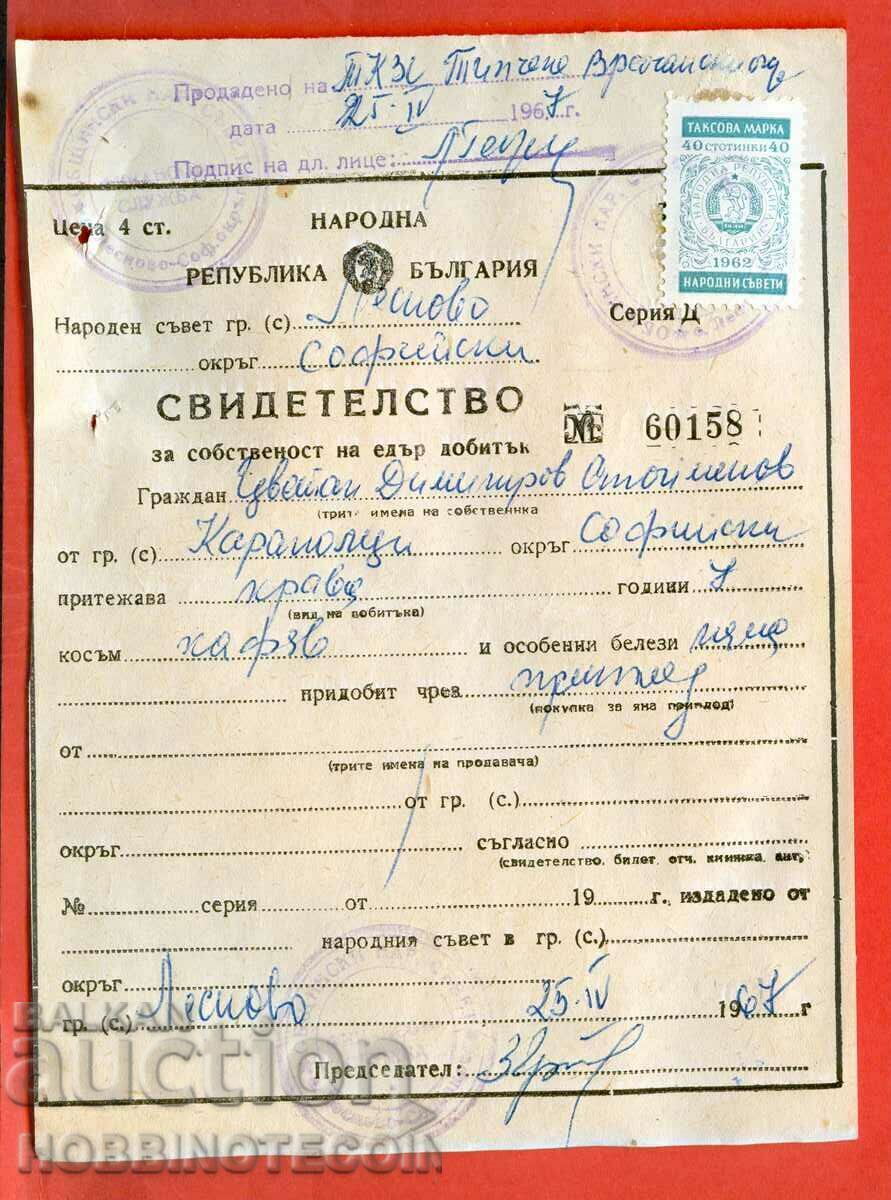 Продадено на ТКЗС Типченица Врачански окр.
дата 25.IV 1967 г.
Подпис на дл. лице:
ТАКСОВА МАРКА
40 СТОТИНКИ 40
НАРОДНА РЕПУБЛИКА БЪЛГАРИЯ
1962
НАРОДНИ СЪВЕТИ
СЛУЖБА
Лесново-Соф.окр.
Цена 4 ст.
НАРОДНА
РЕПУБЛИКА БЪЛГАРИЯ
Народен съвет гр. (с) Лесново Серия Д
окръг Софийски
СВИДЕТЕЛСТВО
за собственост на едър добитък № 60158
Граждан Цветан Димитров Стоименов
(трите имена на собственика
от гр. (с) Караполци окръг Софийски
притежава крава години 7
(вид на добитъка)
косъм кафяв и особении белези няма
придобит чрез приплод
(покупка за яна приплод)
от
(трите имена на продавача)
от гр. (с.)
окръг съгласно
(свидетелство, билет, отч. книжка, акт,
№ серия от 19 г. издадено от
народния съвет в гр. (с.)
окръг
гр. (с.) Лесново 25.IV 1967 г
Председател:
BALKAN
auction
HOBBINOTECOIN